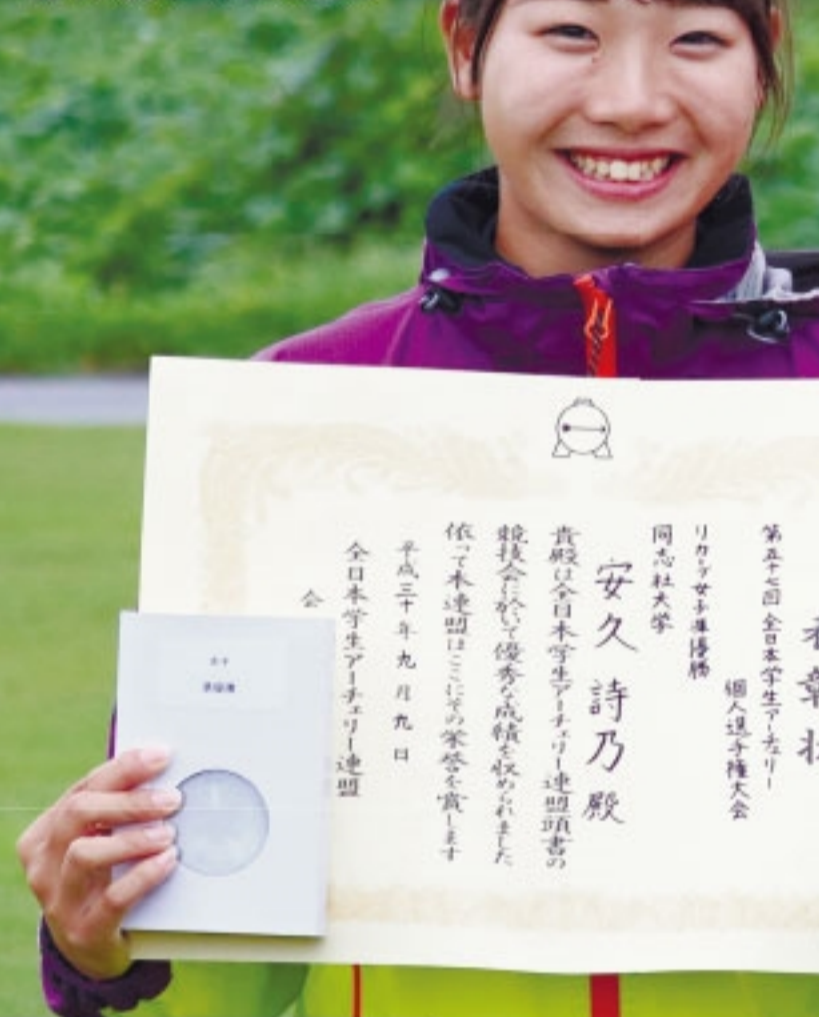 表彰状
第五十七回 全日本学生アーチェリー
個人選手権大会
リカーブ女子準優勝
同志社大学
安久 詩乃 殿
貴殿は全日本学生アーチェリー連盟頭書の
競技会に於いて優秀な成績を収められました
依って本連盟はここにその栄誉を賞します
平成三十年九月九日
全日本学生アーチェリー連盟
会
女子
準優勝